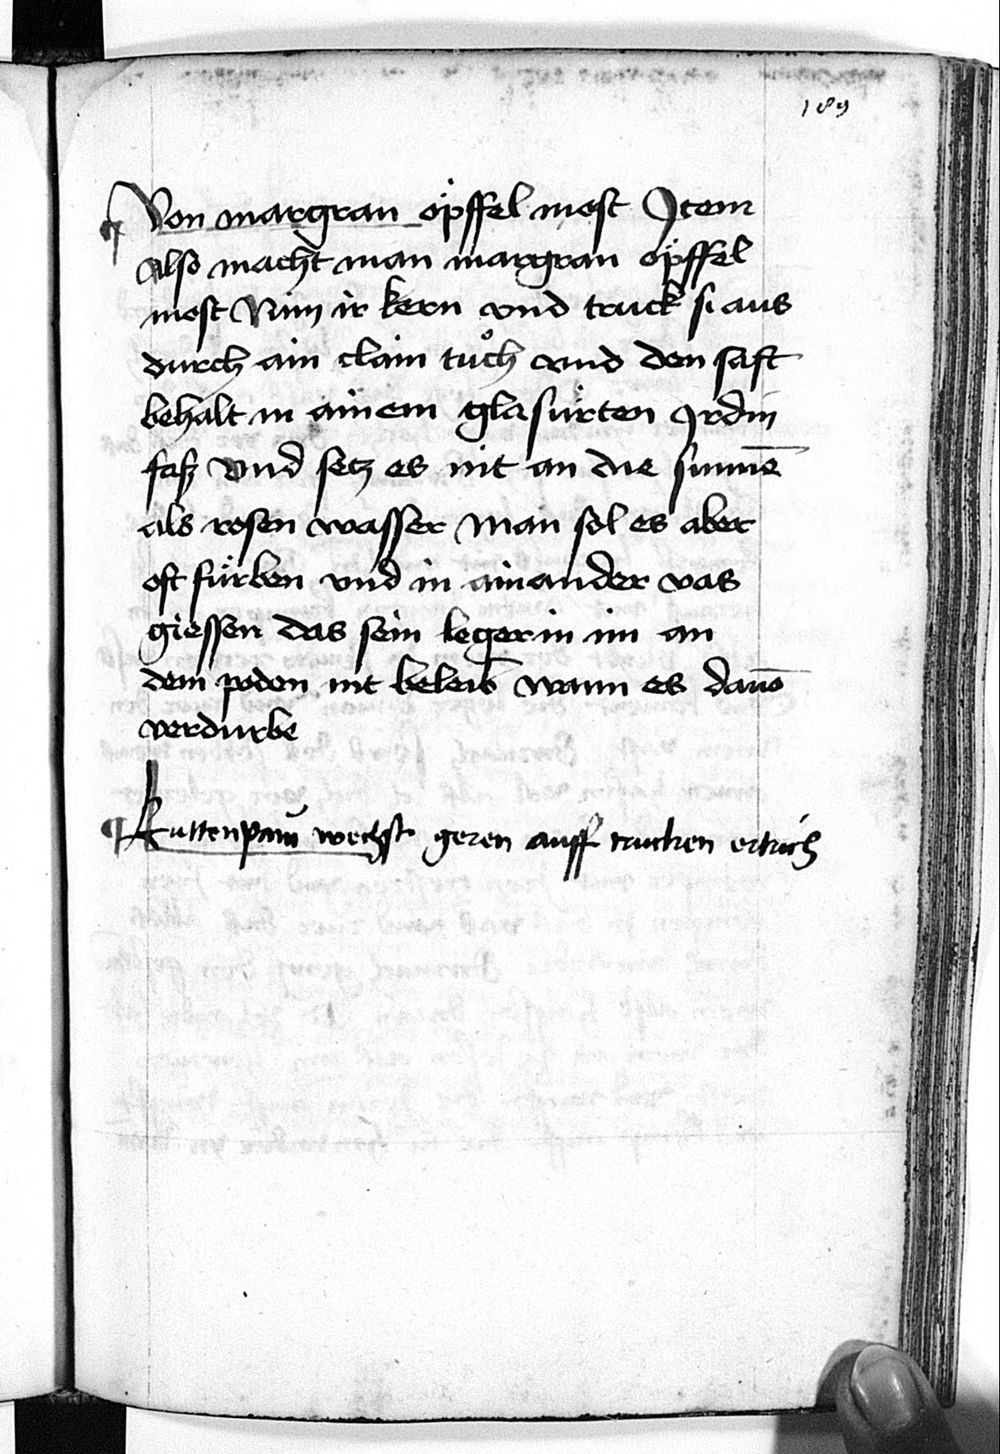 189
¶ Von margran öpffel most Item
also macht man margran öpffel
most Nim ir kern vnd truck si aus
durch ain clain tuͦch vnd den saft
behalt in ainem glasürten yrdin
fasz vnd setz es nit an die sunnē
als rosen wasser Man sol es aber
oft fürben vnd in ainander vas
giessen das sein leger in im an
dem poden nit beleib wann es dauō
verdurbe
¶ Kuttenpaum wechst geren auff trucken ertrich